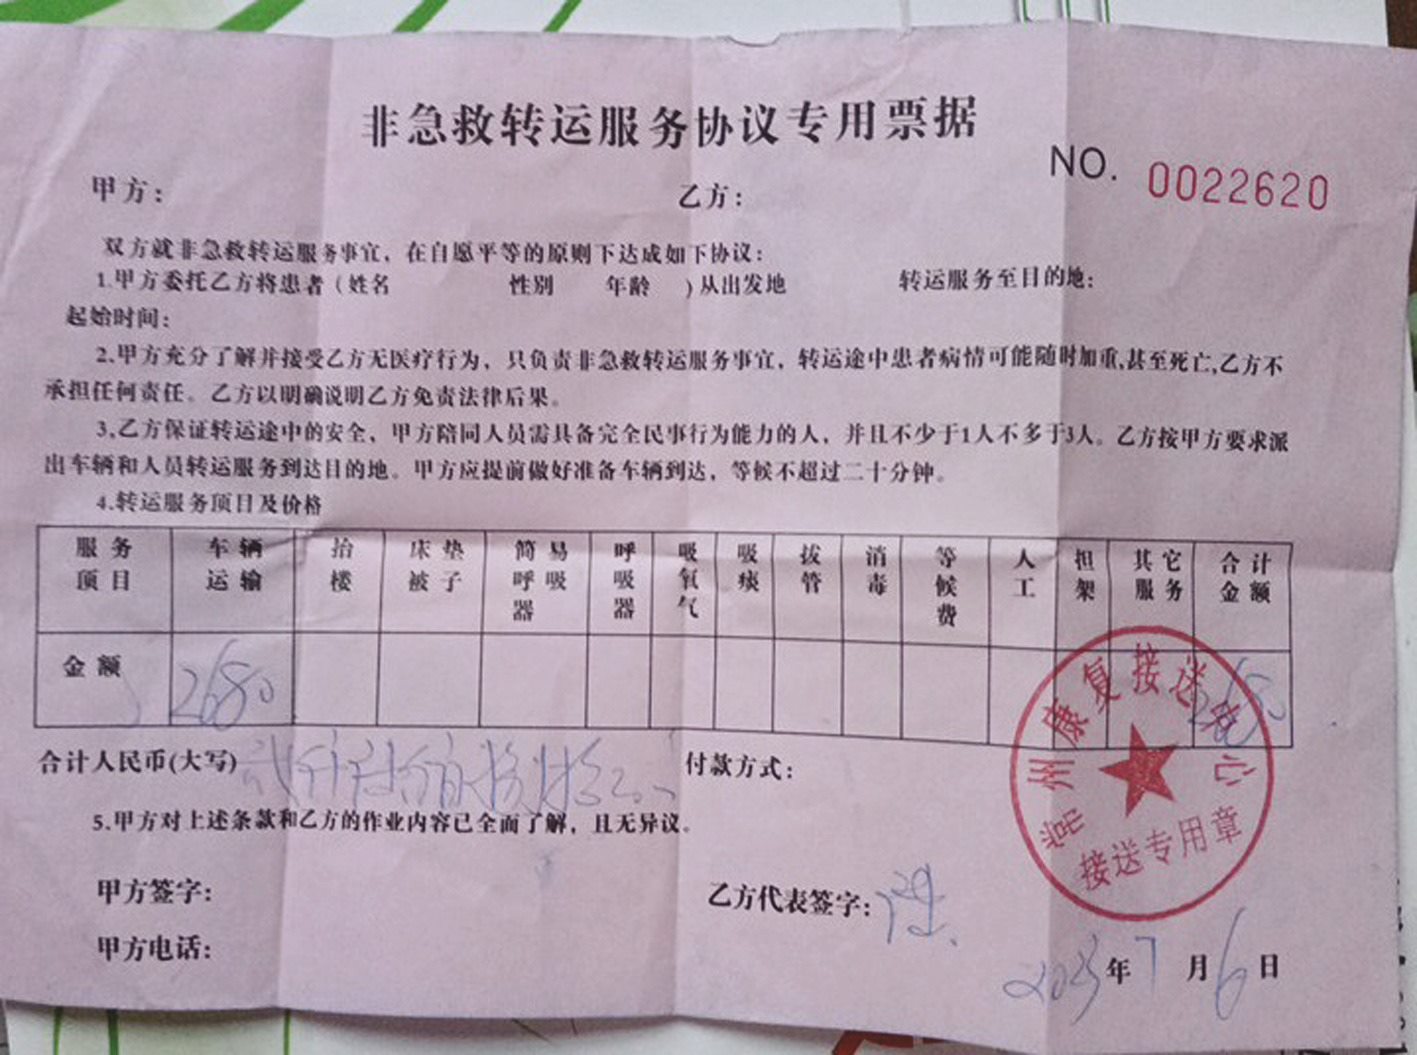 非急救转运服务协议专用票据
NO. 0022620
甲方： 乙方：
双方就非急救转运服务事宜，在自愿平等的原则下达成如下协议：
1.甲方委托乙方将患者（姓名 性别 年龄 ）从出发地 转运服务至目的地：
起始时间：
2.甲方充分了解并接受乙方无医疗行为，只负责非急救转运服务事宜，转运途中患者病情可能随时加重,甚至死亡,乙方不
承担任何责任。乙方以明确说明乙方免责法律后果。
3,乙方保证转运途中的安全，甲方陪同人员需具备完全民事行为能力的人，并且不少于1人不多于3人。乙方按甲方要求派
出车辆和人员转运服务到达目的地。甲方应提前做好准备车辆到达，等候不超过二十分钟。
4.转运服务项目及价格
服务项目 车辆运输 抬楼 床垫被子 简易呼吸器 呼吸器 吸氧气 吸痰 拔管 消毒 等候费 人工 担架 其它服务 合计金额
金额 2680 2680
合计人民币(大写) 付款方式：
5.甲方对上述条款和乙方的作业内容已全面了解，且无异议。
甲方签字： 乙方代表签字：
甲方电话：
2023年7月6日
常州康复接送中心
接送专用章